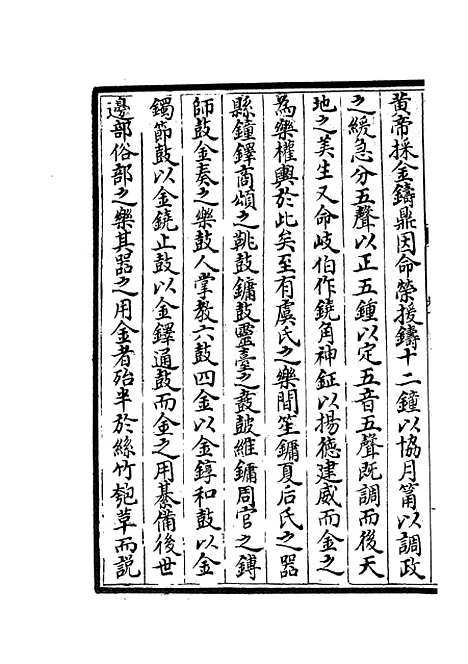 黄帝採金鑄鼎因命榮援鑄十二鐘以協月筩以調政
之緩急分五聲以正五鍾以定五音五聲既調而後天
地之美生又命岐伯作鐃角神鉦以揚德建威而金之
為樂權輿於此矣至有虞氏之樂間笙鏞夏后氏之器
縣鐘鐸商頌之鞉鼓鏞鼓靈臺之鼖皷維鏞周官之鎛
師鼓金奏之樂鼓人掌教六鼓四金以金錞和鼓以金
鐲節鼓以金鐃止鼓以金鐸通鼓而金之用綦備後世
邊部俗部之樂其器之用金者殆半於絲竹匏草而説